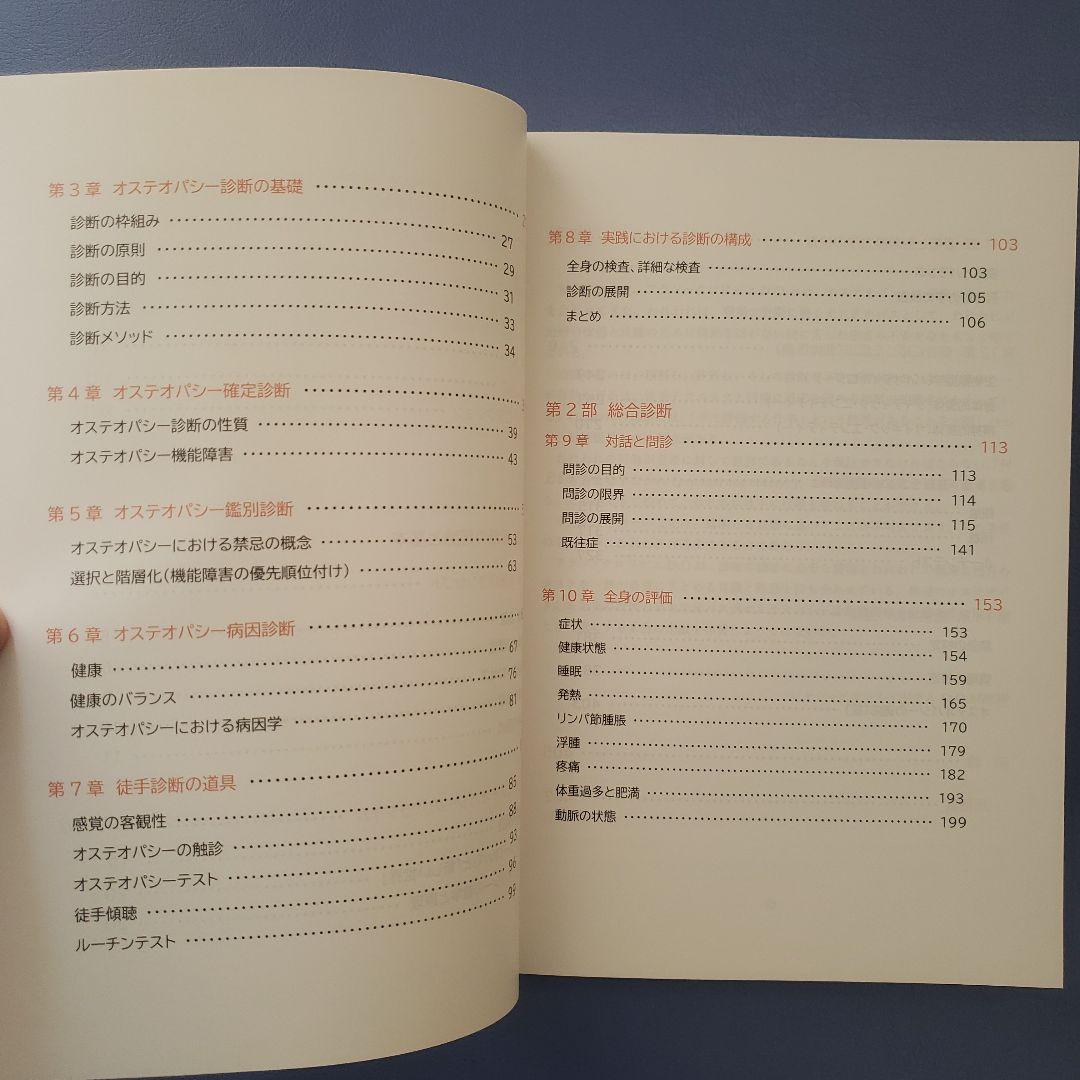 第3章 オステオパシー診断の基礎
診断の枠組み 27
診断の原則 29
診断の目的 31
診断方法 33
診断メソッド 34
第4章 オステオパシー確定診断
オステオパシー診断の性質 39
オステオパシー機能障害 43
第5章 オステオパシー鑑別診断
オステオパシーにおける禁忌の概念 53
選択と階層化(機能障害の優先順位付け) 63
第6章 オステオパシー病因診断
健康 67
健康のバランス 76
オステオパシーにおける病因学 81
第7章 徒手診断の道具
感覚の客観性 85
オステオパシーの触診 88
オステオパシーテスト 93
徒手傾聴 96
ルーチンテスト 99
第8章 実践における診断の構成 103
全身の検査、詳細な検査 103
診断の展開 105
まとめ 106
第2部 総合診断
第9章 対話と問診 113
問診の目的 113
問診の限界 114
問診の展開 115
既往症 141
第10章 全身の評価 153
症状 153
健康状態 154
睡眠 159
発熱 165
リンパ節腫脹 170
浮腫 179
疼痛 182
体重過多と肥満 193
動脈の状態 199